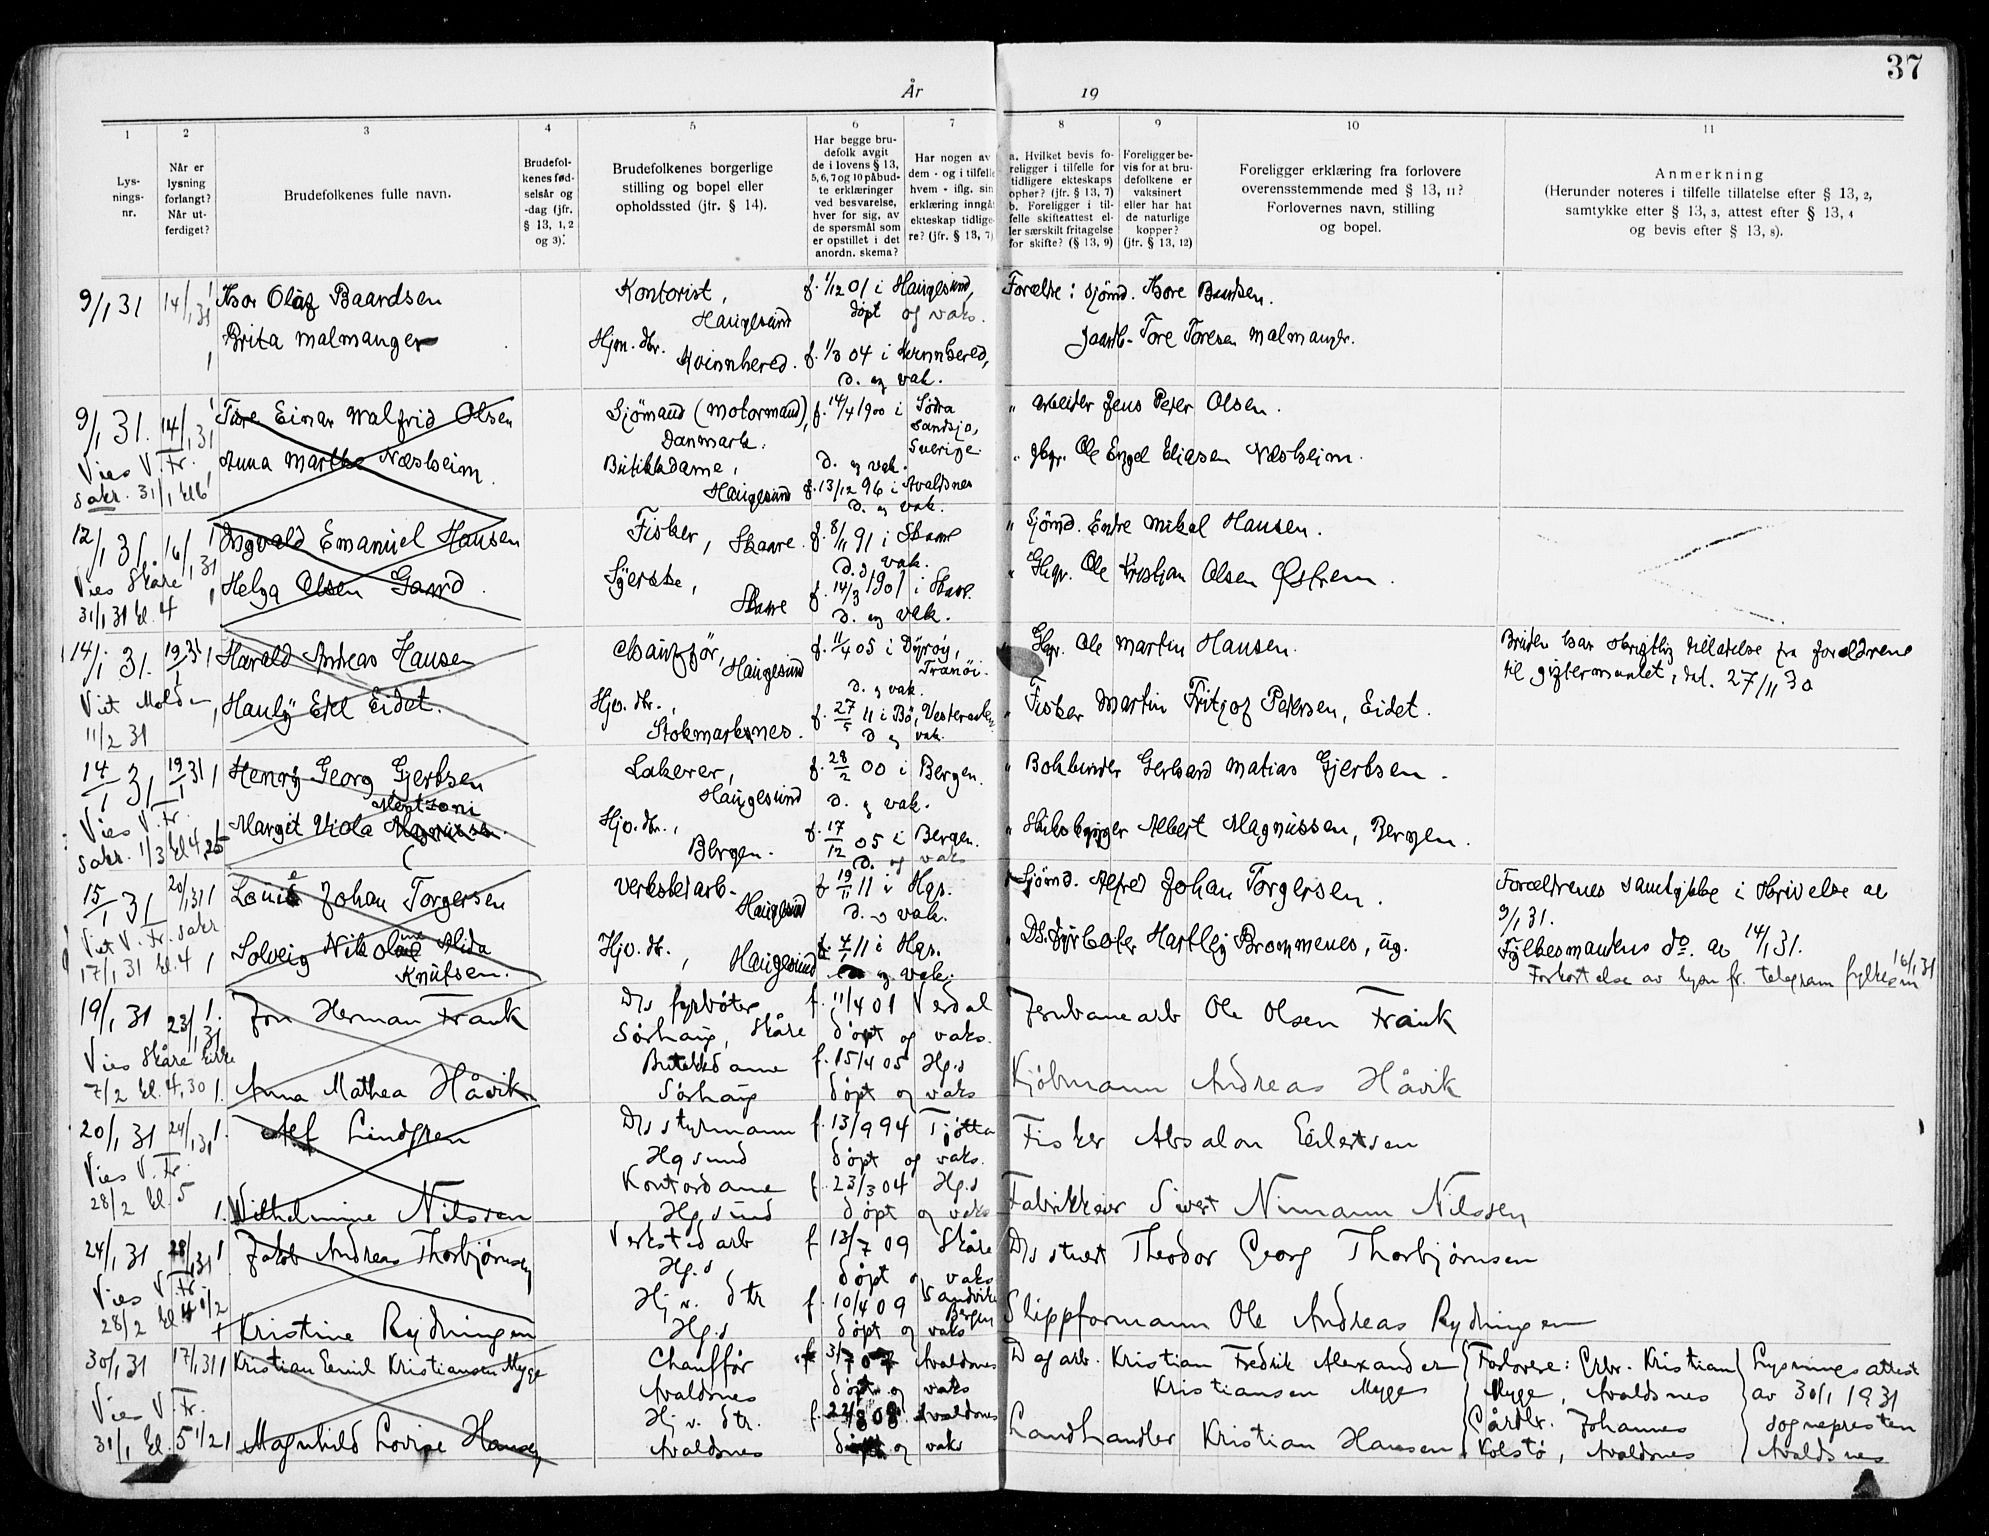 37
År 19
1 2 3 4 5 6 7 8 9 10 11
Lys-
nings-
nr.
Når er
lysning
forlangt?
Når ut-
ferdiget?
Brudefolkenes fulle navn.
Brudefol-
kenes fød-
selsår og
-dag (jfr.
§ 13, 1, 2
og 3).
Brudefolkenes borgerlige
stilling og bopel eller
opholdssted (jfr. § 14).
Har begge bru-
defolk avgit
de i lovens § 13,
5, 6, 7 og 10 påbud-
te erklæringer
ved besvarelse,
hver for sig, av
de spørsmål som
er opstillet i det
anordn. skema?
Har nogen av
dem - og i tilfelle
hvem - iflg. sin
erklæring inngå
ekteskap tidlige-
re? (jfr. § 13, 7)
a. Hvilket bevis fo-
religger i tilfelle for
tidligere ekteskaps
ophør? (jfr. § 13, 7)
b. Foreligger i til-
felle skifteattest el-
ler særskilt fritagelse
for skifte? (§ 13, 9)
Foreligger be-
vis for at bru-
defolkene er
vaksinert
eller har hat
de naturlige
kopper?
(jfr. § 13, 12)
Foreligger erklæring fra forlovere
overensstemmende med § 13, 11?
Forlovernes navn, stilling
og bopel.
Anmerkning
(Herunder noteres i tilfelle tillatelse efter § 13, 2,
samtykke efter § 13, 3, attest efter § 13, 4
og bevis efter § 13, 8).
9/1 31 14/1 31 Thor Olaf Baardsen Kontorist, f. 1/12 01 i Haugesund, Forældre: Sjømd. Thore Baardsen.
Haugesund døpt og vaks.
Brita Malmanger Hjm. dtr. Kvinnhered. f. 1/3 04 i Kvinnhered, Gaardb. Tore Toresen Malmanger.
d. og vak.
9/1 31. 14/1 31 Ture Einar Walfrid Olsen Sjömand (motormand), f. 14/4 1900 i Södra Sandsjo, Sverige. " Arbeider Jens Peter Olsen.
Danmark. d. og vak.
Vies V. Fr. Anna Marthe Næsheim. Butikkdame, " Gbr. Ole Engel Eliasen Næsheim.
sakr. 31/1 kl 6 Haugesund f. 13/12 96 i Avaldsnes
d. og vak.
12/1 31. 16/1 31 Ingvald Emanuel Hansen Fisker, Skaare. f. 8/11 91 i Skaare " Sjømd. Endre Mikal Hansen.
d. og vak.
Vies Skåre Helga Olsen Gand. Syerske, f. 14/3 1901 i Skaare. " Gbr. Ole Kristian Olsen Østrem.
31/1 31 kl. 4 Skaare d. og vak.
14/1 31. 19/1 31 Harald Andreas Hansen Chauffør, Haugesund f. 11/4 05 i Dyrøy, Tranøi. " Gbr. Ole Martin Hansen. Bruden har skriftlig tillatelse fra foreldrene
til giftermaalet, dat. 27/11 30
d. og vak.
Viet Molde Hauly Eidet. Hjv. dtr., f. 27/5 11 i Bø, Vesteraalen " Fisker Martin Fritjof Petersen, Eidet.
11/2 31 Stokmarknes. d. og vak.
14/1 31 19/1 31 Henry Georg Gjertsen Lakerer, f. 28/2 00 i Bergen. " Bokbinder Gerhard Matias Gjertsen.
Haugesund d. og vak.
Mentzoni
Vies V. Fr. Margit Viola Magnussen. Hjv. dtr., f. 17/12 05 i Bergen. " Albert Magnussen, Bergen.
sakr. 1/3 kl 4,25 Bergen. d. og vaks
15/1 31 20/1 31 Louis Johan Torgersen Verkstedarb. f. 19/11 11 i Hgs. " Sjømd. Alfred Johan Torgersen. Forældrenes samtykke i skrivelse av
Haugesund d. og vak. 9/1 31.
Viet V. Fr. sakr Solveig Nikoline Alida Hjv. dtr., Haugesund f. 4/1 11 i Hgs. " DS. fyrbøter Hartvig Brommenes, ug. Fylkesmandens do. av 14/1 31.
17/1 31 kl. 4 Knutsen. og vak. Forkortelse av lysn fr. telegram fylkesm 16/1 31
19/1 31 23/1 31 Jon Herman Frank D/s fyrbøter f. 11/4 01 Verdal Jernbanearb Ole Olsen Frank
Sørhaug, Skåre døpt og vaks.
Vies Skåre kirke Butikkdame f. 15/4 05 Hg.s Kjøbmann Andreas Håvik
7/2 kl. 4,30 Anna Mathea Håvik Sørhaug døpt og vaks
20/1 31 24/1 31 Alf Lindgren D/s styrmann f. 13/9 94 Tjøtta Fisker Absalon Eilertsen
Hgsund døpt og vaks.
Vies V. Fr. Kontordame f. 23/3 04 Hg.s Fabrikkeier Sivert Nimann Nilssen
28/2 kl. 5 Wilhelmine Nilssen Hg.sund døpt og vaks
24/1 31 28/1 31 Jakob Andreas Thorbjørnsen Verksted arb f 13/7 09 Skåre D/s stuert Theodor Georg Thorbjørnsen
Hg.s døpt og vaks
Vies V. Fr. Hj v. dtr f. 10/4 09 Sandviken Bergen Slippformann Ole Andreas Rydningen
28/2 kl 4 1/2 Kristine Rydningen Hg.s døpt og vaks
30/1 31 17/1 31 Kristian Emil Kristiansen Myge Chauffør f 3/7 07 Avaldsnes Dagarb. Kristian Fredrik Alexander Forlovere: Erbr. Kristian Lysningsattest
Avaldsnes døpt og vaks Kristiansen Myge Myge, Avaldsnes av 30/1 1931
Vies V. Fr. Hj v. dtr. f. 22/8 08 Avaldsnes Landhandler Kristian Hansen Gårdbr. Johannes sognepresten
31/1 kl. 5 1/2 Magnhild Lovise Hansen Avaldsnes døpt og vaks Kolstø, Avaldsnes Avaldsnes